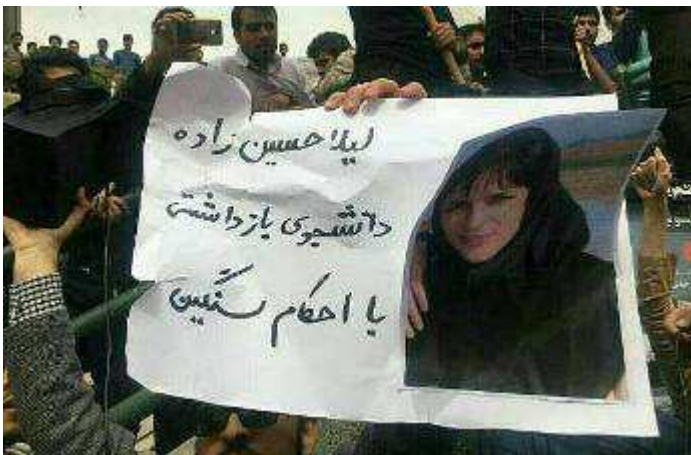 لیلا حسین زاده
دانشجوی بازداشتی
با احکام سنگین